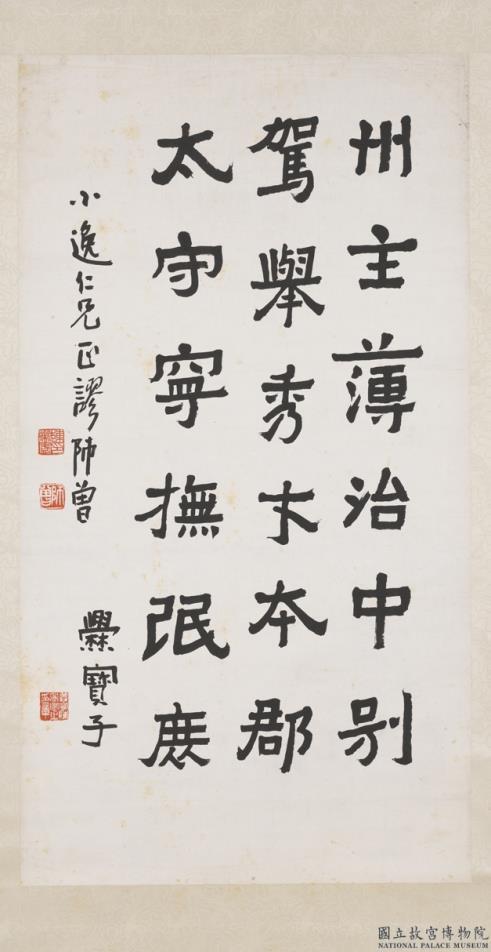 州主薄治中別
駕舉秀才本郡
太守寧撫氓庶
爨寶子
小逸仁兄正謬 師曾
國立故宮博物院
NATIONAL PALACE MUSEUM